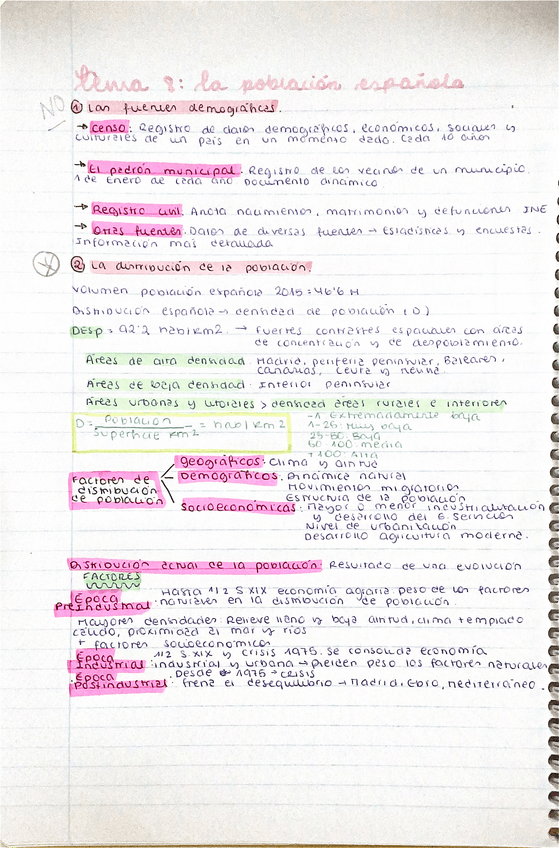 Tema 8: la población española
NO
① Las fuentes demográficas.
→ Censo: Registro de datos demográficos, económicos, sociales y
culturales de un país en un momento dado. Cada 10 años
→ El padrón municipal. Registro de los vecinos de un municipio.
1 de Enero de cada año Documento dinámico
→ Registro civil. Anota nacimientos, matrimonios y defunciones INE
→ Otras fuentes. Datos de diversas fuentes → Estadísticas y encuestas.
Información más detallada
② La distribución de la población.
Volumen población española 2015 = 46'6 M
Distribución española → densidad de población (D)
DESP = 92'2 hab/km2. → Fuertes contrastes espaciales con áreas
de concentración y de despoblamiento.
Áreas de alta densidad. Madrid, periferia peninsular, Baleares,
Canarias, Ceuta y Melilla.
Áreas de baja densidad. Interior peninsular
Áreas urbanas y litorales > densidad áreas rurales e interiores
D = Población / Superficie km2 = hab/km2
-1 Extremadamente baja
1-25 Muy baja
25-50. Baja
50 100 media
+100. Alta
Factores de distribución de población
Geográficos: Clima y altitud
Demográficos. Dinámica natural
Movimientos migratorios
Estructura de la población
Socioeconómicos: Mayor o menor industrialización
y desarrollo del s. servicios
Nivel de urbanización
Desarrollo agricultura moderna.
Distribución actual de la población: Resultado de una evolución
FACTORES
Época Preindustrial. Hasta 1/2 S XIX economía agraria. peso de los factores
naturales en la distribución de población.
Mayores densidades: Relieve llano y baja altitud, clima templado
cálido, proximidad al mar y ríos
+ factores socioeconómicos
Época Industrial. 1/2 S. XIX y crisis 1975. Se consolida economía
industrial y urbana → pierden peso los factores naturales
Época Postindustrial. Desde 1975 → crisis
Frena el desequilibrio → Madrid, Ebro, mediterráneo.